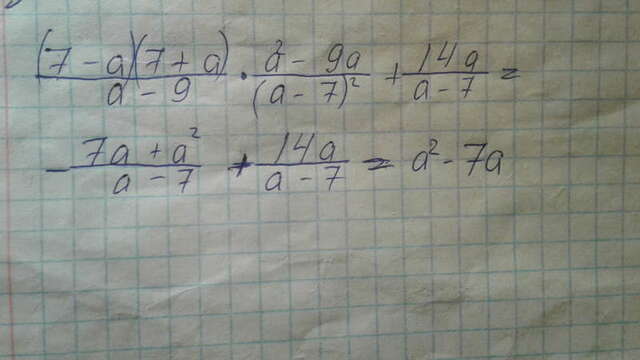 (7 - a)(7 + a)/(a - 9) · (a² - 9a)/(a - 7)² + 14a/(a - 7) =
- (7a + a²)/(a - 7) + 14a/(a - 7) = a² - 7a